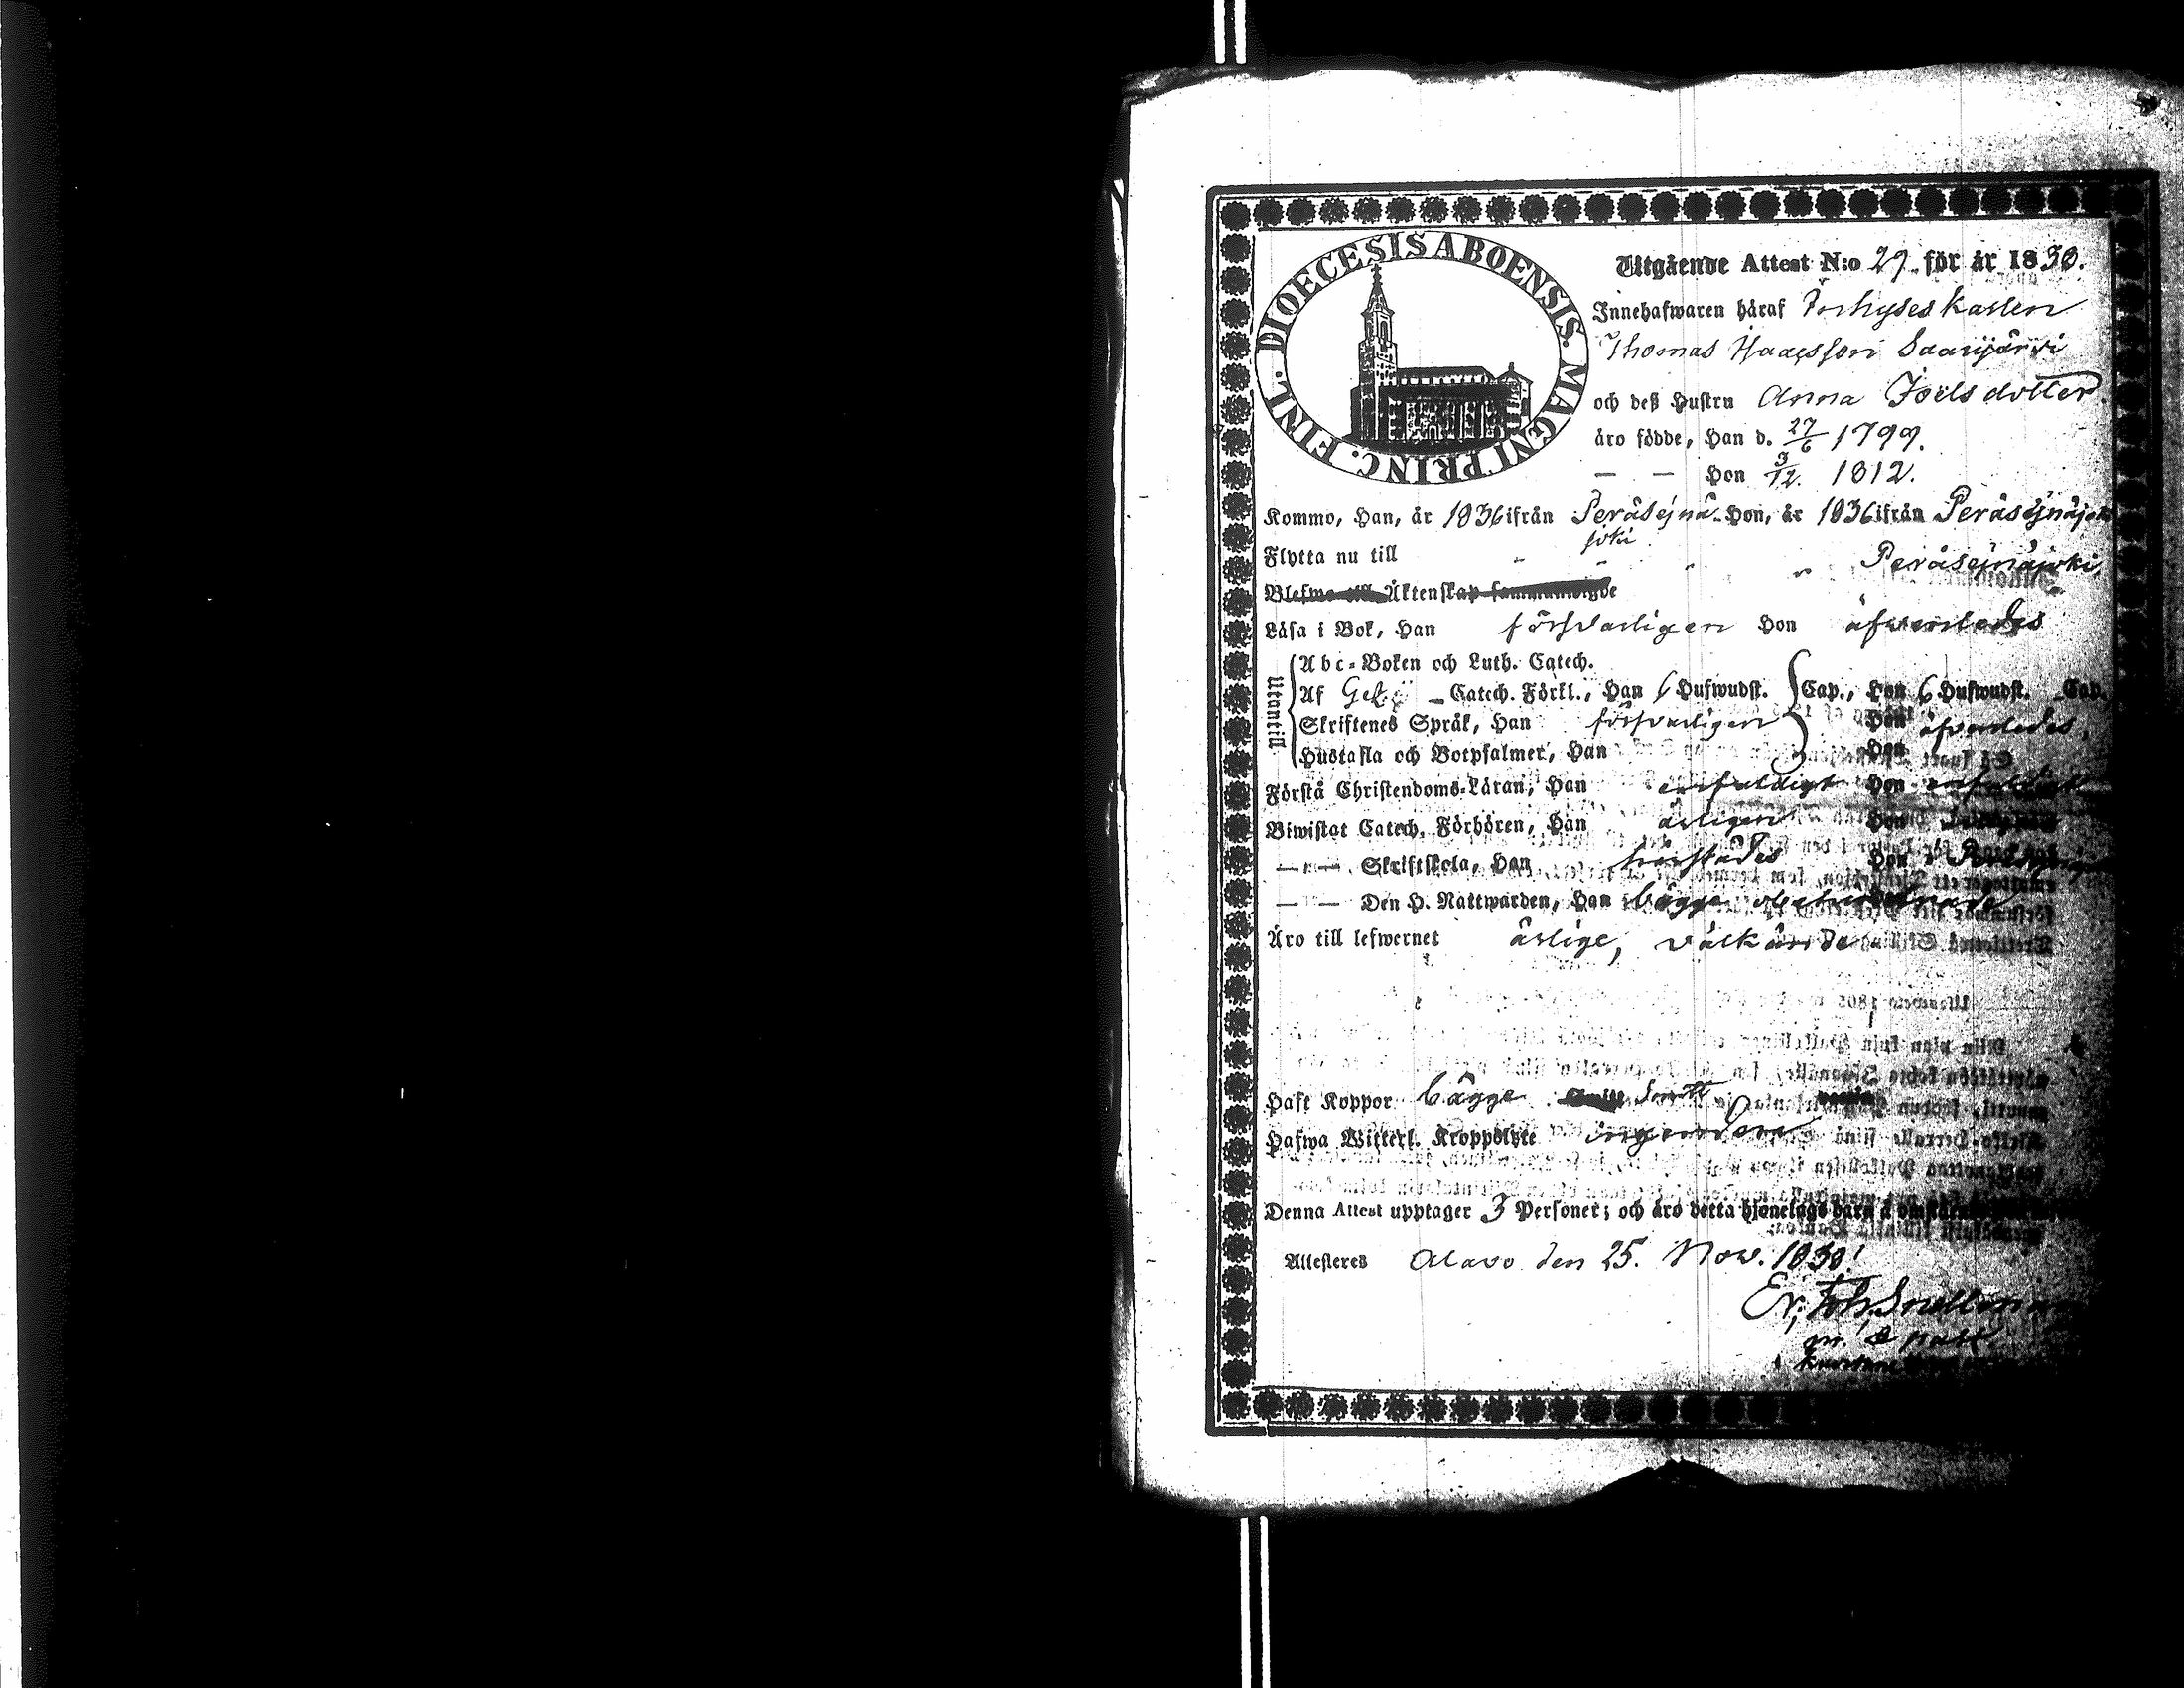 DIOECESIS ABOENSIS. MAGNI PRINC. FINL.
Utgående Attest N:o 29. för år 1838.
Innehafwaren häraf Inhyseskarlen
Thomas Saarijärvi
och deß Hustru Anna Joëlsdotter.
äro födde, Han d. 27/6 1799.
— — Hon 3/12. 1812.
Kommo, Han, år 1836 ifrån Peräsejnä- Hon, år 1836 ifrån Peräsejnäjoki
joki
Flytta nu till Peräsejnäjoki
Äktenskap
Läsa i Bok, Han försvarligen Hon äfvenledes
Utantill
Abc-Boken och Luth. Catech.
Af Catech. Förkl., Han 6 Hufwudst. Cap., Hon 6 Hufwudst. Cap.
Skriftenes Språk, Han försvarligen Hon äfvenledes.
Hustafla och Botpsalmer, Han Hon
Förstå Christendoms-Läran, Han enfaldigt Hon enfaldigt
Biwistat Catech. Förhören, Han årligen Hon
— — Skriftskola, Han härstädes Hon i
— — Den H. Nattwarden, Han bägge
Äro till lefwernet ärlige, välkände
Haft Koppor bägge
Hafwa Witterl. Kroppslyte ingendera
Denna Attest upptager 3 Personer; och äro detta hjonelags barn å
Attesteres Alavo den 25. Nov. 1838.
Er. Joh. Snellman